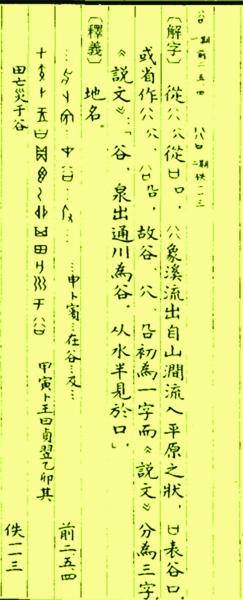 一期 前二、五、四 二期 佚一一三
〔解字〕從八八從口,八八象溪流出自山澗流入平原之狀,口表谷口。
或省作 故谷、初為一字而《說文》分為三字。
《說文》:「谷,泉出通川為谷。从水半見於口。」
〔釋義〕
地名。
…申卜賓…在谷…及… 前二、五、四
甲寅卜王曰貞翌乙卯其
田亡災于谷 佚一一三